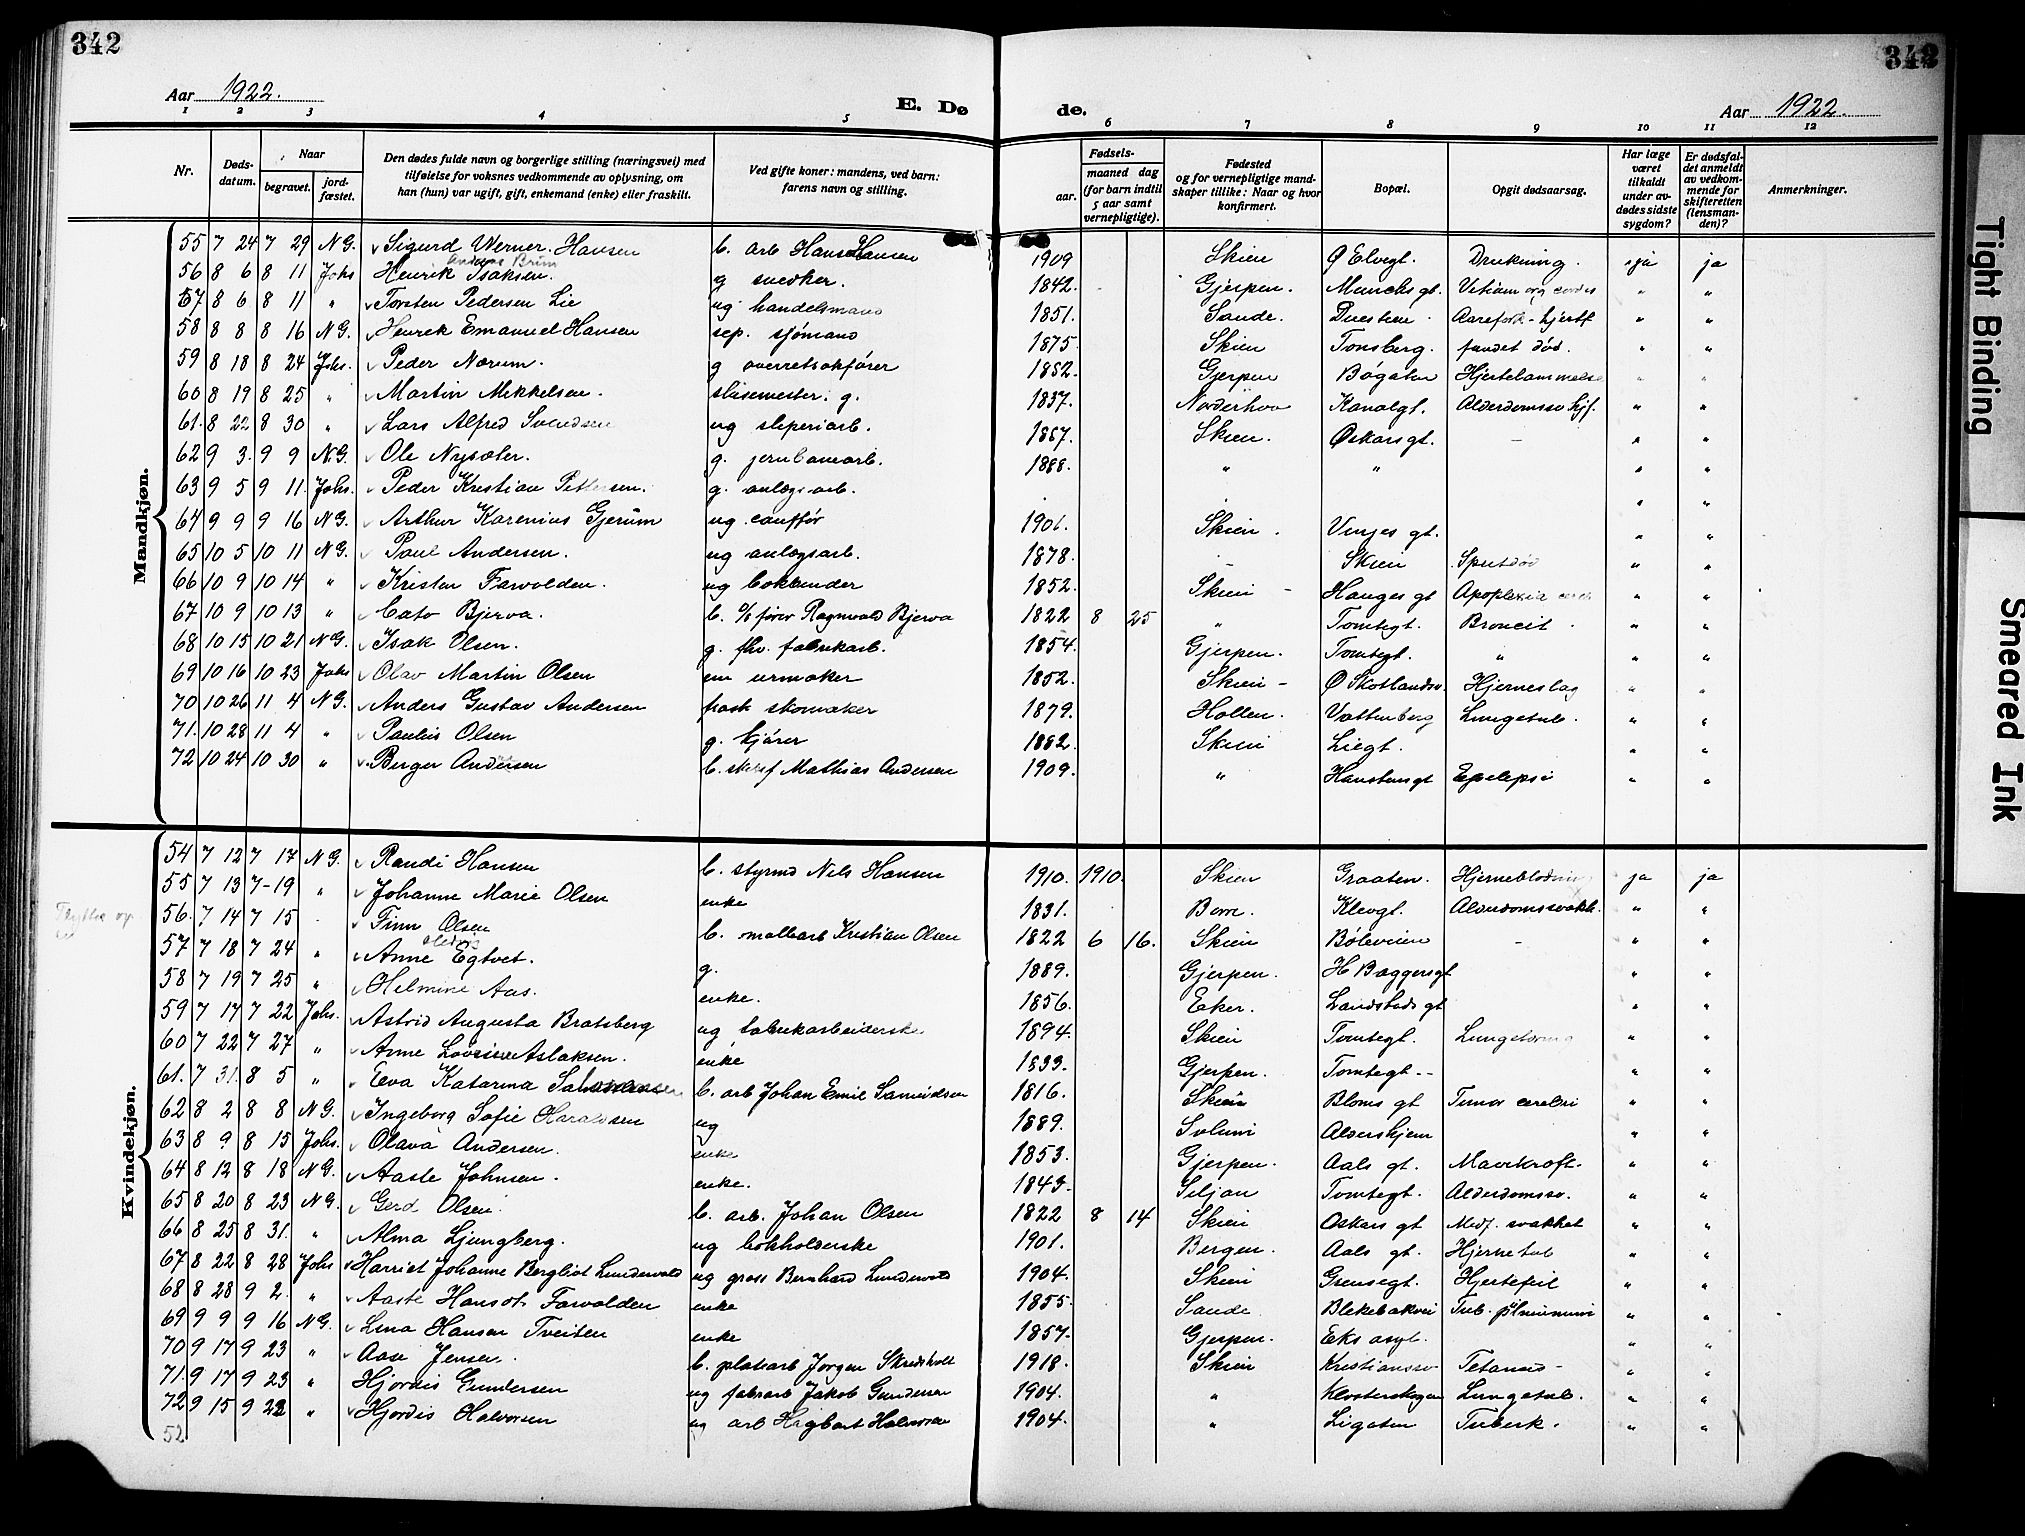 342
342
Aar 1922.
E. Dø de.
Aar 1922.
1 2 3 4 5 6 7 8 9 10 11 12
Nr.
Døds-datum.
Naar
begravet.
jord-fæstet.
Den dødes fulde navn og borgerlige stilling (næringsvei) med
tilføielse for voksnes vedkommende av oplysning, om
han (hun) var ugift, gift, enkemand (enke) eller fraskilt.
Ved gifte koner: mandens, ved barn:
farens navn og stilling.
Fødsels-
aar.
maaned dag
(for barn indtil
5 aar samt
vernepligtige).
Fødested
og for vernepligtige mand-
skaper tillike: Naar og hvor
konfirmert.
Bopæl.
Opgit dødsaarsag.
Har læge
været
tilkaldt
under av-
dødes sidste
sygdom?
Er dødsfal-
det anmeldt
av vedkom-
mende for
skifteretten
(lensman-
den)?
Anmerkninger.
Mandkjøn.
55 7 24 7 29 N G. Sigurd Werner Hansen b. arb Hans Hansen 1909 Skien Ø Elvegt. Drukning. ja ja
56 8 6 8 11 Johs Henrik Isaksen. g snedker. 1842. Gjerpen. Munchs gt. " "
57 8 6 8 11 " Torsten Pedersen Lie ug handelsmand 1851. Sande. " "
58 8 8 8 16 N G. Henrik Emanuel Hansen sep. sjömand 1875. Skien Tonsberg. fundet död. " "
59 8 18 8 24 Johs. Peder Norum. g overretsakfører 1852. Gjerpen Bögaten Hjertelammelse " "
60 8 19 8 25 " Martin Mikkelsen. slusemester. g. 1837. Norderhov Kanalgt. " "
61. 8 22 8 30 " Lars Alfred Svendsen ug sliperiarb. 1867. Skien. Øskars gt. - " "
62 9 3. 9 9 N.G. Ole Nysæter. g. jernbanearb. 1888. " " " "
63 9 5 9 11. Johs. Peder Kristian Pettersen. g. anlægsarb. " "
64 9 9 9 16 N G. Arthur Karenius Gjerum ug. 1901. Skien. Vinjes gt. " "
65 10 5 10 11 N G. Paul Andersen. ug anlægsarb. 1878. - Skien " "
66 10 9 10 14 " Kristen Farvolden. ug bokbinder 1852. Skien - Hauges gt Apoplexia " "
67 10 9 10 13 " Cato Bjerva. b. Ragnvald Bjerva 1822 8 25 " Tomtegt. Broncit. " "
68 10 15 10 21 N G. Isak Olsen. g. fhv. fabrikarb. 1854. Gjerpen. Tomtegt. " " "
69 10 16 10 23 Johs Olav Martin Olsen em urmaker 1852. Skien - Ø Skotlandsv. Hjerneslag " "
70 10 26 11 4 N G. Anders Gustav Andersen frask skomaker 1879. Hollen. Lungetub. " "
71. 10 28 11 4 " Paulus Olsen g. kjører 1882. Skien Liegt. " "
72 10 24 10 30 " Birger Andersen b. Mathias Andersen 1909. " Epilepsi " "
Kvindekjøn.
54 7 12 7 17 N G. Randi Hansen b. styrmd Nils Hansen 1910. 1910. Skien Graaten. Hjerneblødning ja ja
55 7 13 7-19 " Johanne Marie Olsen enke 1831. Klevgt. Alderdomssvakh. " "
56. 7 14 7 15 Finn Olsen b. Kristian Olsen 1822 6 16. Skien Böleveien - " "
57 7 18 7 24 " Anne Egtvet. g. 1889. Gjerpen. H Baggersgt " "
58 7 19 7 25 " Helmine Aas. enke. 1856. Eker. Landstads gt " "
59 7 17 7 22 Johs. Astrid Augusta Bratsberg ug fabrikarbeiderske 1894. Skien Tomtegt. " "
60 7 22 7 27 " Anne Aslaksen. enke 1833. Gjerpen. Tomtegt. -- " "
61. 7 31. 8 5 " Eva Katarina b. arb Johan Emil 1816. Skien Bloms gt Tumor cerebri " "
62 8 2 8 8 N G. Ingeborg Sofie Haraldsen ug 1889. Solum Aldershjem " "
63 8 9 8 15 Johs. Olava Andersen. enke 1853. Gjerpen. Aals gt. Mavekræft. " "
64 8 12 8 18 N G. Aaste Johnsen. enke. 1843. Siljan Tomtegt. Alderdomssv. " "
65 8 20 8 23 N G. Gerd Olsen b. arb. Johan Olsen 1822 8 14 Skien Oskars gt Medf. svakhet " "
66 8 25 8 31. " Alma Ljungberg. ug bokholderske 1901. Bergen. Aals gt. Hjernetub " "
67 8 22 8 28 Johs Harriet Johanne Bergliot Lundevald ug gross Bernhard Lundevald 1904. Skien Grensegt. Hjertefeil " "
68 8 28 9 2. " Aaste Hansdt. Farvolden enke 1855. Sande Blekebakvei Tub. " "
69 9 9 9 16 N G. Lina Hansen Tveiten enke 1857. Gjerpen. Eks asyl. " "
70 9 17 9 23 " Aase Jensen. b. platearb Jørgen 1918. Skien Kristianssv Tetanus - " "
71. 9 17 9 23 " Hjordis Gundersen ug fabrarb Jakob Gundersen 1904. " Klosterskogen Lungetub. " "
72 9 15 9 22 " Hjordis Halvorsen ug arb Halvorsen 1904. " Ligaten Tuberk. " "
52
Tight Binding
Smeared Ink